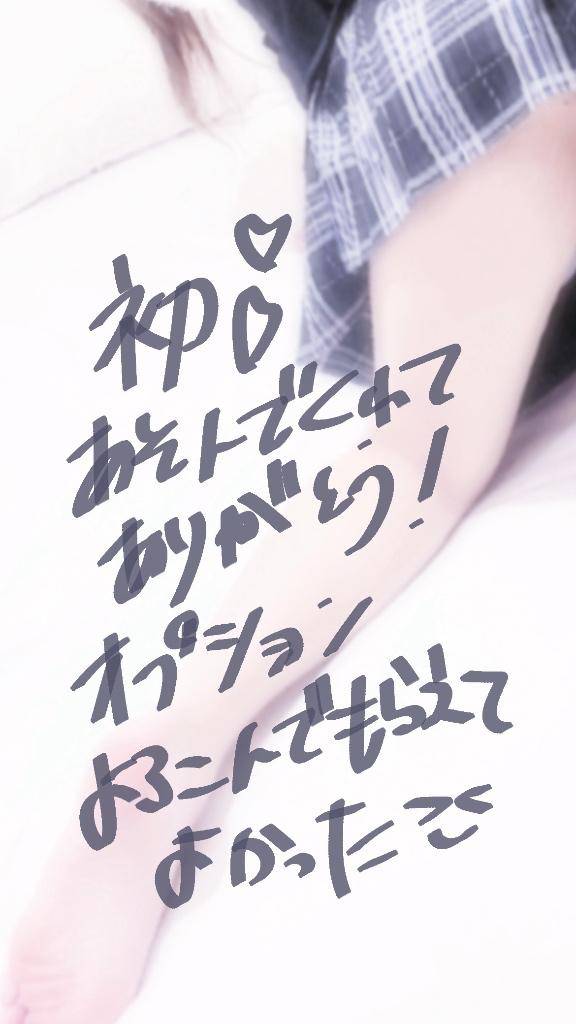 初♡♡
あそんでくれて
ありがとう!
オプション
よろこんでもらえて
よかったてご